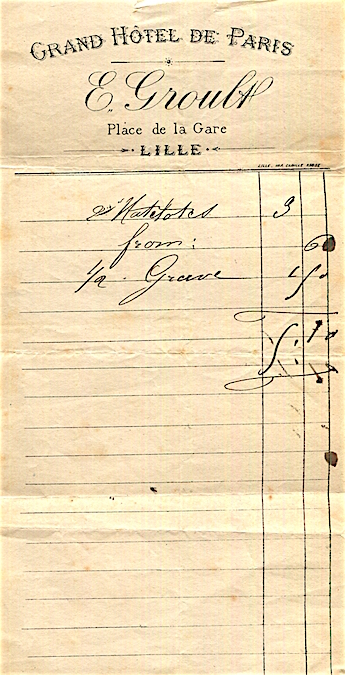 GRAND HÔTEL DE PARIS
E. Groult
Place de la Gare
LILLE
LILLE, IMP. CAMILLE ROBBE
2 Matelotes 3
from: 60
1/2 Grave 1 50
5 10